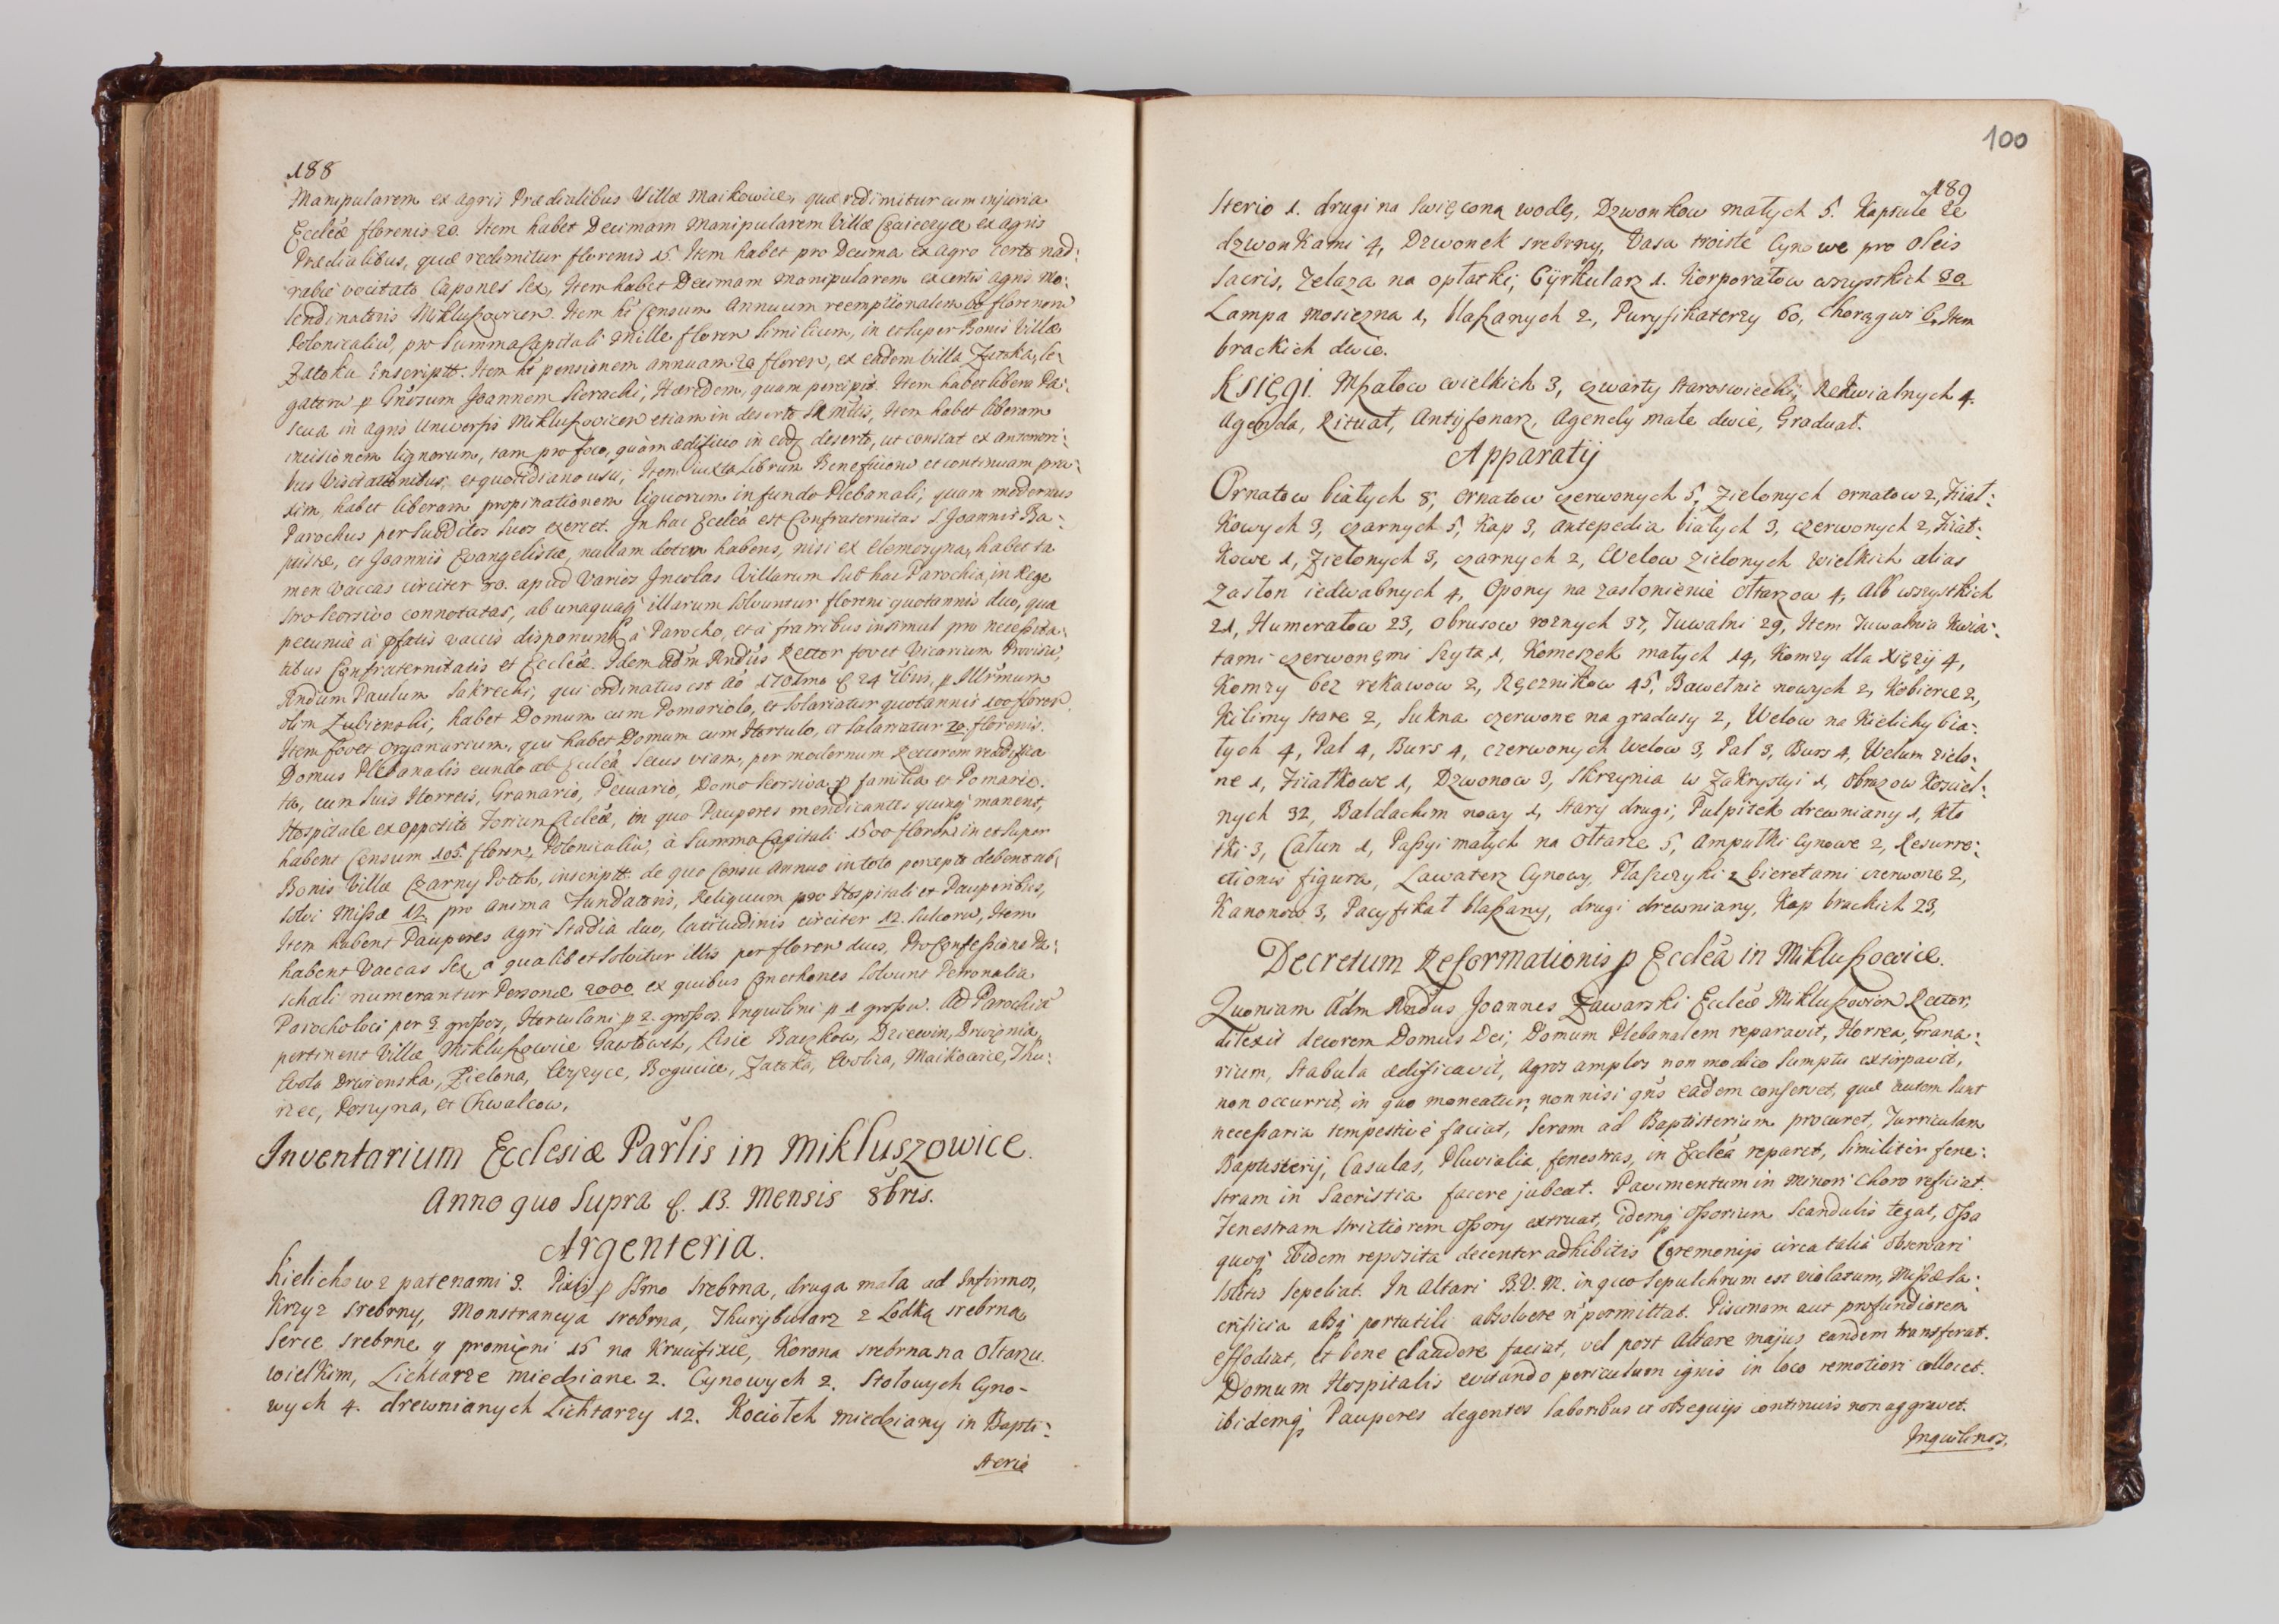 188
Manipularem ex agris Prædialibus Villæ Maikowice, quæ redimitur cum injuria
Eccleæ florenis 20. Item habet Decimam Manipularem Villæ ex agris
Prædialibus, quæ redimitur florenis 15. Item habet pro Decima ex agro certo nad:
rabie vocitato Capones Sex, Item habet Decimam manipularem ex certis agris Mo:
lendinatoris Mikluszovicen. Item ht Censum Annuum reemptionalem florenorum
Polonicaliu, pro Summa Capitali Mille floren similium, in et super Bonis Villæ
Zatoka Inscriptt. Item ht pensionem annuam 20 floren, ex eadem Villa
p Gnosum Joannem Sieracki, Hæredem, quam percipit. Item habet libera Pa:
scua in agris universis Mikluszovicen etiam in deserto Item habet liberam
incisionem lignorum, tam pro foco, quàm ædificio in eodem deserto, ut constat ex anteriori:
bus Visitationibus, et quotidiano usu, Item iuxta Librum Beneficiorum et continuam pra:
xim, habet liberam propinationem liquorum in fundo Plebanali, quam modernus
Parochus per Subditos suos exercet. In hac Eccleâ est Confraternitas S Joannis Ba:
ptistæ, et Joannis Evangelistæ, nullam dotem habens, nisi ex elemozyna, habet ta
men Vaccas circiter 30. apud Varios Incolas Villarum sub hac Parochia, in Rege
stro seorsivo connotatas, ab unaquaq illarum solvuntur floreni quotannis duo, quæ
pecuniæ à pfatis vaccis disponunt à Parocho, et à fratribus insimul pro necessita:
tibus Confraternitatis et Eccleæ. Idem Adm Rndus Rector fovet Vicarium Provisu,
Rndum Paulum Sakrecki, qui ordinatus est Aõ 1701mo d. 24 p Illrmum
olim Łubienski, habet Domum cum Pomariolo, et solariatur quotannis 100 floren.
Item fovet Organarium, qui habet Domum cum Hortulo, et salariatur 20. florenis.
Domus Plebanalis eundo ab Eccleâ secus viam, per modernum Rectorem reædifica
ta, cum suis Horreis, Granario, Pecuario, Domo seorsiva p familia et Pomario.
Hospitale ex opposito Eccleæ, in quo Pauperes mendicantes quinq manent,
habent Censum 105 floren, Polonicaliu, à Summa Capitali 1500 floren in et super
Bonis Villæ Czarny Potok, inscriptt. de quo Censu annuo in toto percepto debent ab:
solvi Missæ 12 pro anima Fundatoris, Reliquum pro Hospitali et Pauperibus,
Item habent Pauperes agri Stadia duo, latitudinis circiter 12. Sulcoru, Item
habent Vaccas Sex, a qualibet solvitur illis per floren duos, Pro Confessione Pa:
schali numerantur Personæ 2000 ex quibus Cmethones solvunt Petronalia
Parocho loci per 3. grossos, Hortulani p 2. grossos. Inquilini p 1 grossu. Ad Parochiã
pertinent Villæ Mikluszowice Gawłowek, Lisie Baczkow, Dziewin, Drwinia,
Wola Drwienska, Zielona, Wyzyce, Bogucice, Zatoka, Wolica, Maikowice, Thu:
rzec, Poszyna, et Chwalcow,
Inventarium Ecclesiæ Parlis in Mikluszowice.
Anno quo Supra d. 13. Mensis 8bris.
Argenteria.
Kielichow z patenami 3. Pixis p ssmo srebrna, druga mała ad Infirmos,
Krzyz srebrny, Monstrancya srebrna, Thurybularz z Łodką srebrna
Serce srebrne y promieni 15 na Krucifixie, Korona srebrna na Ołtarzu
wielkim, Lichtarze miedziane 2. Cynowych 2. Stolowych Cyno-
wych 4. drewnianych Lichtarzy 12. Kociołek miedziany in Bapti:
sterio
100
189
sterio 1. drugi na swięconą wodę, Dzwonkow małych 5. Kapsule ze
dzwonkami 4, Dzwonek srebrny, Vasa troiste Cynowe pro Oleis
Sacris, Zelaza na opłatki, Cyrkularz 1. Korporałow wszystkich 30
Lampa mosiezna 1, blaszanych 2, Puryfikaterzy 60, Chorągwi 6, Item
brackich dwie.
Księgi. Mszałow wielkich 3, czwarty staroswiecki, Rekwialnych 4.
Agenda, Rituał, Antyfonarz, Agendy małe dwie, Graduał.
Apparaty
Ornatow białych 8, ornatow czerwonych 5, Zielonych ornatow 2, Fiiał:
kowych 3, czarnych 5, Kap 3, antepedia białych 3, czerwonych 2, Fiiał:
kowe 1, Zielonych 3, czarnych 2, Welow zielonych wielkich alias
Zasłon iedwabnych 4, Opony na zasłonienie Ołtarzow 4, Alb wszystkich
21, Humerałow 23, obrusow roznych 37, Tuwalni 29, Item Tuwalnia Kwia:
tami czerwonemi szyta 1, Komeszek małych 14, Komzy dla Xięży 4,
Komzy bez rekawow 2, Ręcznikow 45, Bawełnic nowych 2, Kobierce 2,
Kilimy stare 2, Sukna czerwone na gradusy 2, Welow na Kielichy bia:
łych 4, Pal 4, Burs 4, czerwonych Welow 3, Pal 3, Burs 4, Welum zielo:
ne 1, Fiiałkowe 1, Dzwonow 3, Skrzynia w Zakrystyi 1, obrazow Kosciel:
nych 32, Baldachim nowy 1, stary drugi, Pulpitek drewniany 1, Kło
tki 3, Całun 1, Passyi małych na Ołtarze 5, Ampułki Cynowe 2, Resurre:
ctionis figura, Lawaterz Cynowy, Płaszczyki z bieretami czerwone 2,
Kanonow 3, Pacyfikał blaszany, drugi drewniany, Kap brackich 23,
Decretum Reformationis p Eccleâ in Mikluszowice.
Quoniam Adm Rndus Joannes Zawarski Eccleæ Mikluszovien Rector,
dilexit decorem Domus Dei, Domum Plebanalem reparavit, Horrea, Grana:
rium, Stabula ædificavit, Agros amplos non modico Sumptu extirpavit,
non occurrit, in quo moneatur, non nisi qñs eadem conservet, quæ autem sunt
necessaria tempestivè faciat, Seram ad Baptisterium procuret, Turriculam
Baptisterij, Casulas, Pluvialia, fenestras, in Eccleâ reparet, similiter fene:
stram in Sacristia facere jubeat. Pavimentum in minori Choro reficiat.
Fenestram strictiorem Ossory extruat, idemq Ossorium Scandulis tegat, Ossa
quoq ibidem reposita decenter adhibitis Cæremonijs circa talia observari
solitis sepeliat. In Altari B.V.M. in quo Sepulchrum est violatum, Missæ Sa:
crificia absq portatili absolvere ñ permittat. Piscinam aut profundiorem
effodiat, et bene claudere faciat, vel post Altare majus eandem transferat.
Domum Hospitalis evitando periculum ignis in loco remotiori collocet.
ibidemq Pauperes degentes laboribus et obsequijs continuis non aggravet.
Inquilinos,